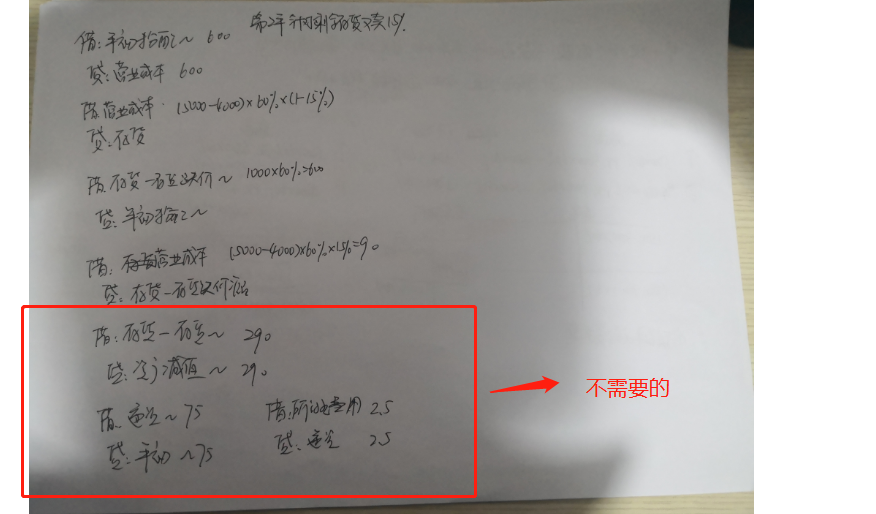 第2年 针对剩余存货又卖15%.
借:年初未分配~ 600
贷:营业成本 600
借:营业成本 (5000-4000)×60%×(1-15%)
贷:存货
借:存货-存货跌价~ 1000×60%=600
贷:年初未分~
借:营业成本 (5000-4000)×60%×15%=90
贷:存货-存货跌价准备
借:存货-存货~ 290
贷:资产减值~ 290
借:递延~75
贷:年初~75
借:所得税费用 2.5
贷:递延 2.5
不需要的